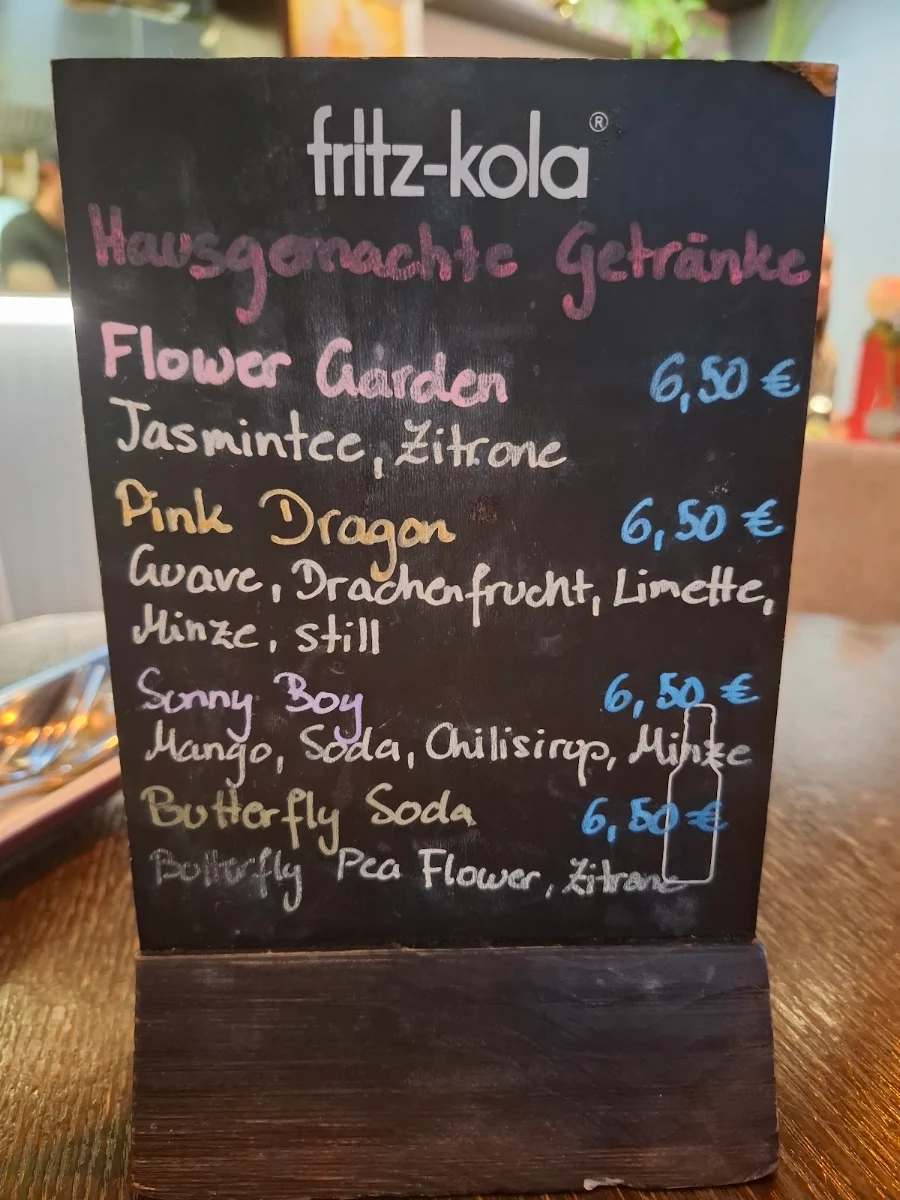 fritz-kola®
Hausgemachte Getränke
Flower Garden 6,50 €
Jasmintee, Zitrone
Pink Dragon 6,50 €
Guave, Drachenfrucht, Limette,
Minze, still
Sunny Boy 6,50 €
Mango, Soda, Chilisirup, Minze
Butterfly Soda 6,50 €
Butterfly Pea Flower, Zitrone